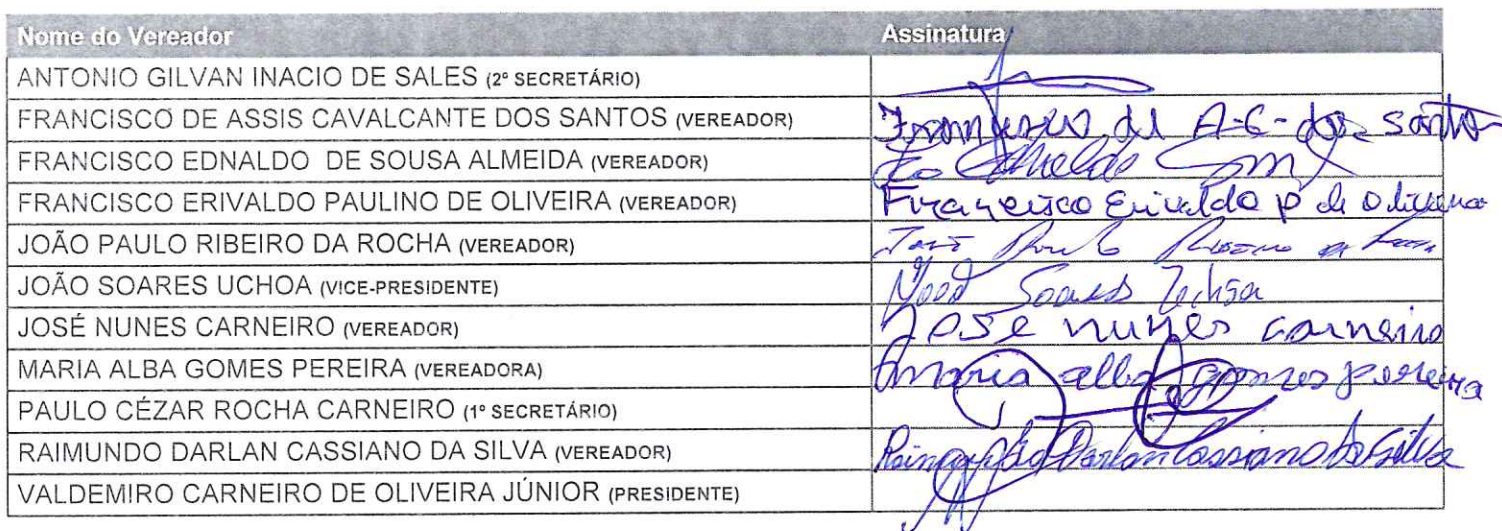 Nome do Vereador Assinatura
ANTONIO GILVAN INACIO DE SALES (2º SECRETÁRIO)
FRANCISCO DE ASSIS CAVALCANTE DOS SANTOS (VEREADOR) Francisco de A-C-dos Santos
FRANCISCO EDNALDO DE SOUSA ALMEIDA (VEREADOR)
FRANCISCO ERIVALDO PAULINO DE OLIVEIRA (VEREADOR) Francisco Erivaldo P de Oliveira
JOÃO PAULO RIBEIRO DA ROCHA (VEREADOR) João Paulo Ribeiro da Rocha
JOÃO SOARES UCHOA (VICE-PRESIDENTE) João Soares Uchoa
JOSÉ NUNES CARNEIRO (VEREADOR) José nunes carneiro
MARIA ALBA GOMES PEREIRA (VEREADORA) maria alba gomes pereira
PAULO CÉZAR ROCHA CARNEIRO (1º SECRETÁRIO)
RAIMUNDO DARLAN CASSIANO DA SILVA (VEREADOR) Raimundo Darlan Cassiano da Silva
VALDEMIRO CARNEIRO DE OLIVEIRA JÚNIOR (PRESIDENTE)